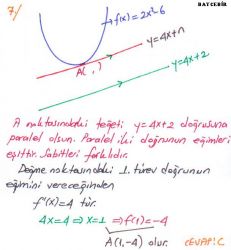 BAYÇEBİR
7/
f(x)=2x²-6
y=4x+n
A( , )
y=4x+2
A noktasındaki teğeti y=4x+2 doğrusuna
paralel olsun. Paralel iki doğrunun eğimleri
eşittir. Sabitleri farklıdır.
Değme noktasındaki 1. türev doğrunun
eğimini vereceğinden
f'(x)=4 tür.
4x=4 ⇒ x=1 ⇒ f(1)=-4
A(1,-4) olur.
CEVAP: C